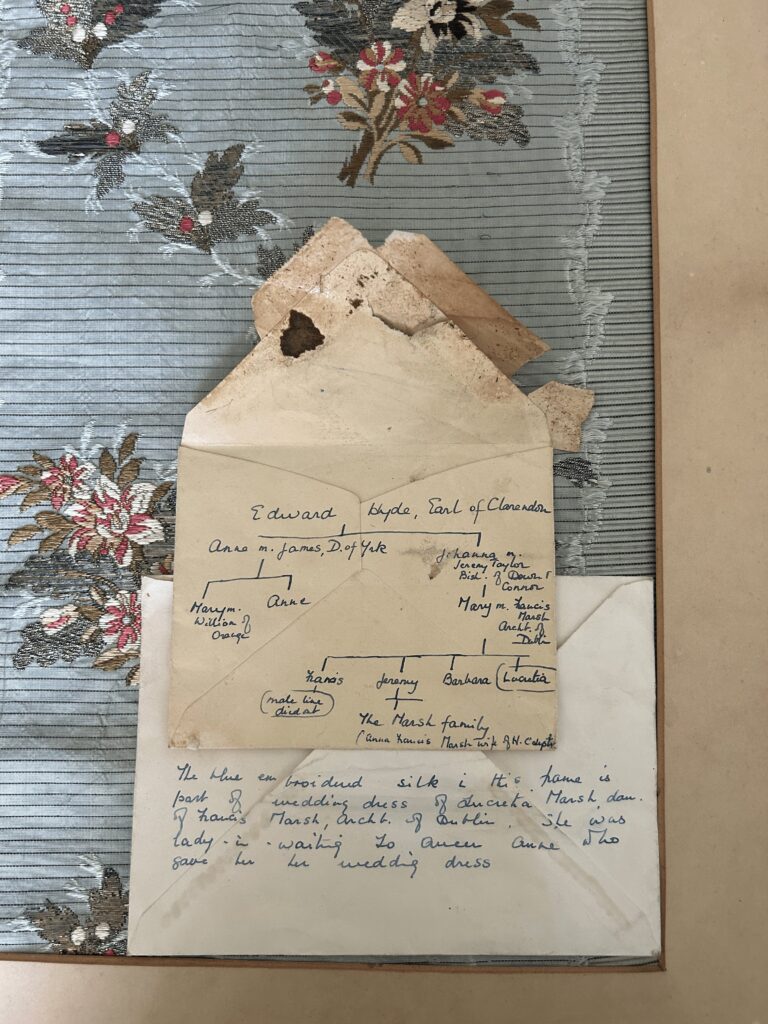 Edward Hyde, Earl of Clarendon
Anne m. James, D. of York
Johanna m.
Jeremy Taylor
Bish. of Down &
Connor
Mary m.
William of
Orange
Anne
Mary m. Francis
Marsh
Archt. of
Dublin
Francis
Jeremy
Barbara
Lucretia
(male line
died out)
The Marsh family
(Anna Francis Marsh wife of H.
The blue embroidered silk in this frame is
part of wedding dress of Lucretia Marsh, dau.
of Francis Marsh, Archt. of Dublin. She was
lady-in-waiting to Queen Anne who
gave her her wedding dress